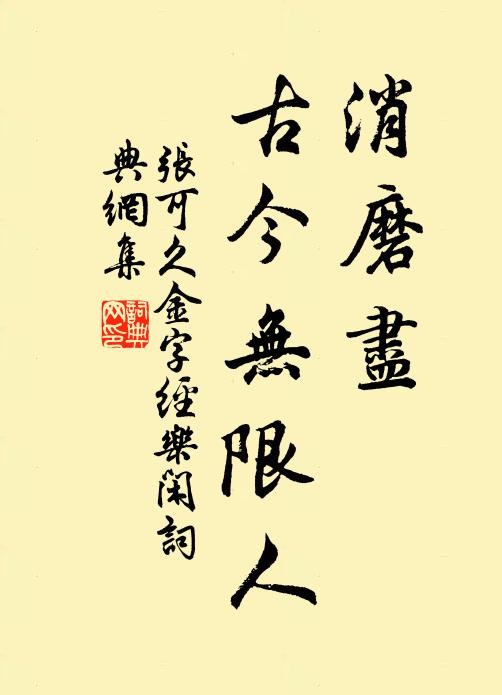 消磨盡
古今無限人
張可久金字經樂閑詞
典網集
詞典
网印